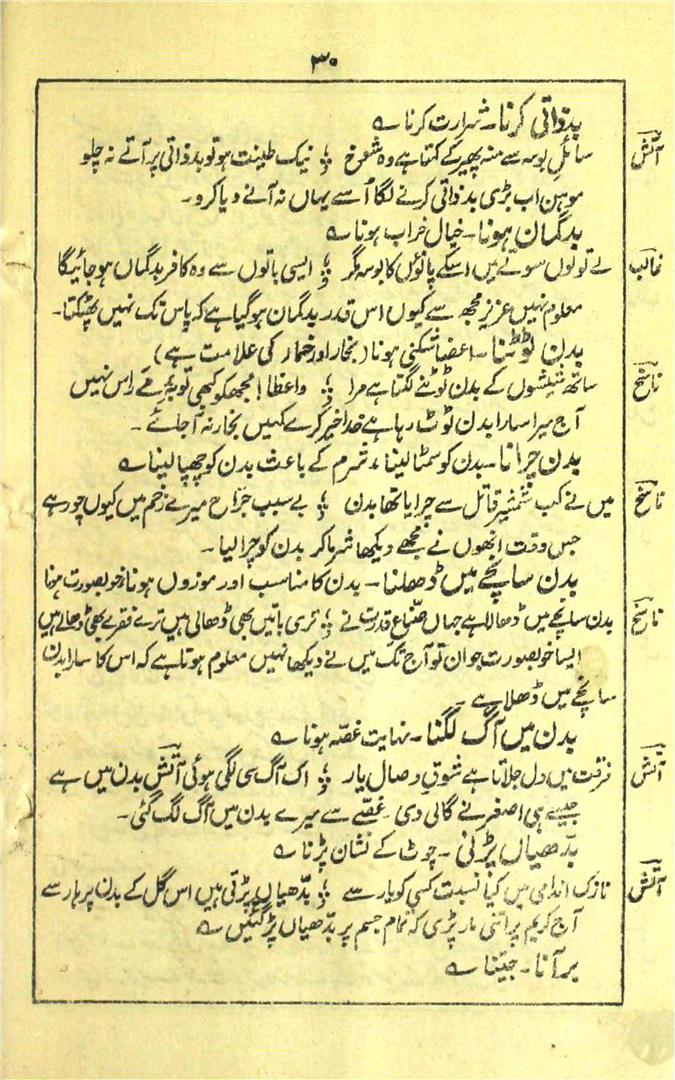 ۳۰
بدذاتی کرنا۔ شرارت کرنا ے
آتش سائلِ بوسہ سے منہ پھیر کے کہتا ہے وہ شوخ ؛ نیک طینت ہو تو بدذاتی پر آتے نہ چلو
موہن اب بڑی بدذاتی کرنے لگا اُسے یہاں نہ آنے دیا کرو۔
بدگمان ہونا۔ خیال خراب ہونا ے
غالب لے تو لوں سوتے میں اسکے پانوؤں کا بوسہ مگر ؛ ایسی باتوں سے وہ کافر بدگماں ہو جائیگا
معلوم نہیں عزیز مجھ سے کیوں اس قدر بدگمان ہو گیا ہے کہ پاس تک نہیں پھٹکتا۔
بدن ٹوٹنا۔ اعضا شکنی ہونا (بخار اور خمار کی علامت ہے)
ناسخ ساتھ شیشوں کے بدن ٹوٹنے لگتا ہے مرا ؛ واعظا! مجھکو کبھی توبۂ مے راس نہیں
آج میرا سارا بدن ٹوٹ رہا ہے خدا خیر کرے کہیں بخار نہ آ جائے۔
بدن چرانا۔ بدن کو سمٹا لینا، شرم کے باعث بدن کو چھپا لینا ے
ناسخ میں نے کب شمشیرِ قاتل سے چرایا تھا بدن ؛ بے سبب جرّاح میرے زخم میں کیوں چور ہے
جس وقت انھوں نے مجھے دیکھا شرما کر بدن کو چرا لیا۔
بدن سانچے میں ڈھلنا۔ بدن کا مناسب اور موزوں ہونا، خوبصورت ہونا
ناسخ بدن سانچے میں ڈھالا ہے جہاں صنّاعِ قدرت نے ؛ تری باتیں بھی ڈھالی ہیں ترے فقرے بھی ڈھالے ہیں
ایسا خوبصورت جوان تو آج تک میں نے دیکھا نہیں معلوم ہوتا ہے کہ اس کا سارا بدن
سانچے میں ڈھلا ہے۔
بدن میں آگ لگنا۔ نہایت غصّہ ہونا ے
آتش فرقت میں دل جلاتا ہے شوقِ وصالِ یار ؛ اک آگ سی لگی ہوئی آتش بدن میں ہے
جیسے ہی اصغر نے گالی دی۔ غصّے سے میرے بدن میں آگ لگ گئی۔
بدّھیاں پڑنی۔ چوٹ کے نشان پڑنا ے
آتش نازک اندامی میں کیا نسبت کسی کو یار سے ؛ بدّھیاں پڑتی ہیں اس گل کے بدن پر ہار سے
آج کریم پر اتنی مار پڑی کہ تمام جسم پر بدّھیاں پڑ گئیں ے
بر آنا۔ جیتنا ے